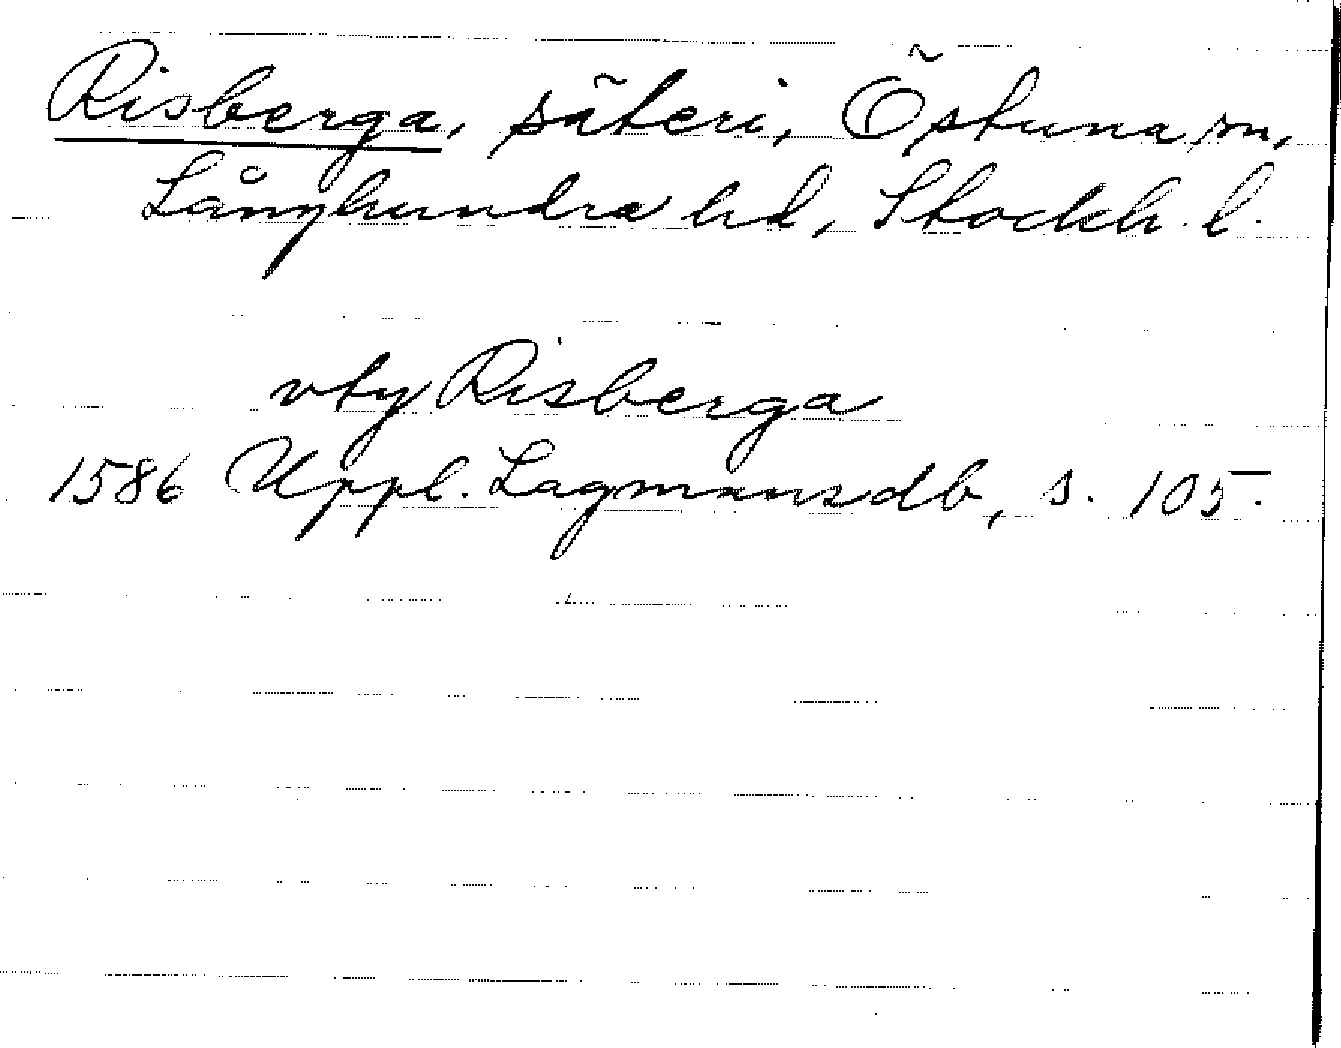 Risberga, säteri, Östuna sn,
Långhundra hd, Stockh. l.
vty Risberga
1586 Uppl. Lagmansdb, s. 105.